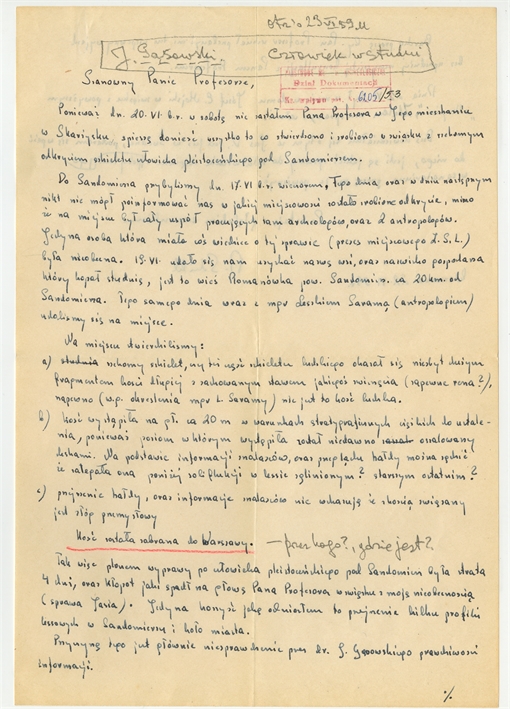 otrz. 23 VI 59 M
J. Gąssowski. Człowiek w studni
Dział Dokumentacji
6205/53
Szanowny Panie Profesorze,
Ponieważ dn. 20.VI b.r. w sobotę nie zastałem Pana Profesora w Jego mieszkaniu
w Skaryszku, spieszę donieść wszystko to co stwierdzono i zrobiono w związku z rzekomym
odkryciem szkieletu człowieka plejstoceńskiego pod Sandomierzem.
Do Sandomierza przybyliśmy dn. 17.VI b.r. wieczorem, tego dnia, oraz w dniu następnym
nikt nie mógł poinformować nas w jakiej miejscowości zostało zrobione odkrycie, mimo
że na miejscu był cały zespół pracujących tam archeologów, oraz 2 antropologów.
Jedyna osoba która miała coś wiedzieć o tej sprawie (prezes miejscowego Z.S.L.)
była nieobecna. 19.VI. udało się nam uzyskać nazwę wsi, oraz nazwisko gospodarza
który kopał studnię, jest to wieś Romanówka pow. Sandomierz ca 20 km. od
Sandomierza. Tego samego dnia wraz z mgr Leszkiem Saramą (antropologiem)
udaliśmy się na miejsce.
Na miejscu stwierdziliśmy:
a) rzekomy szkielet, czy też część szkieletu ludzkiego okazał się niezbyt dużym
fragmentem kości długiej z zachowanym stawem jakiegoś zwierzęcia (zapewne rena?),
na pewno (w.g. określenia mgr L. Saramy) nie jest to kość ludzka.
b) kość wystąpiła na gł. ca 20 m w warunkach stratygraficznych ciężkich do ustale-
nia, ponieważ poziom w którym wystąpiła został niedawno oszalowany
deskami. Na podstawie informacji znalazców, oraz przeglądu hałdy można sądzić
że zalegała ona poniżej soliflukcji w lessie zglinionym? starszym ostatnim?
c) przejrzenie hałdy, oraz informacje znalazców nie wskazują że z kością związany
jest złóp przemysłowy
Kość została zabrana do Warszawy. – przez kogo?, gdzie jest?
Tak więc plonem wyprawy po człowieka plejstoceńskiego pod Sandomierz była strata
4 dni, oraz kłopot jaki spadł na głowę Pana Profesora w związku z moją nieobecnością
(sprawa Jasia). Jedyna korzyść jaką odniosłem to przejrzenie kilku profili
lessowych w Sandomierzu i koło miasta.
Przyczyną tego jest głównie niesprawdzenie przez dr. J. Gąssowskiego prawdziwości
informacji.
%